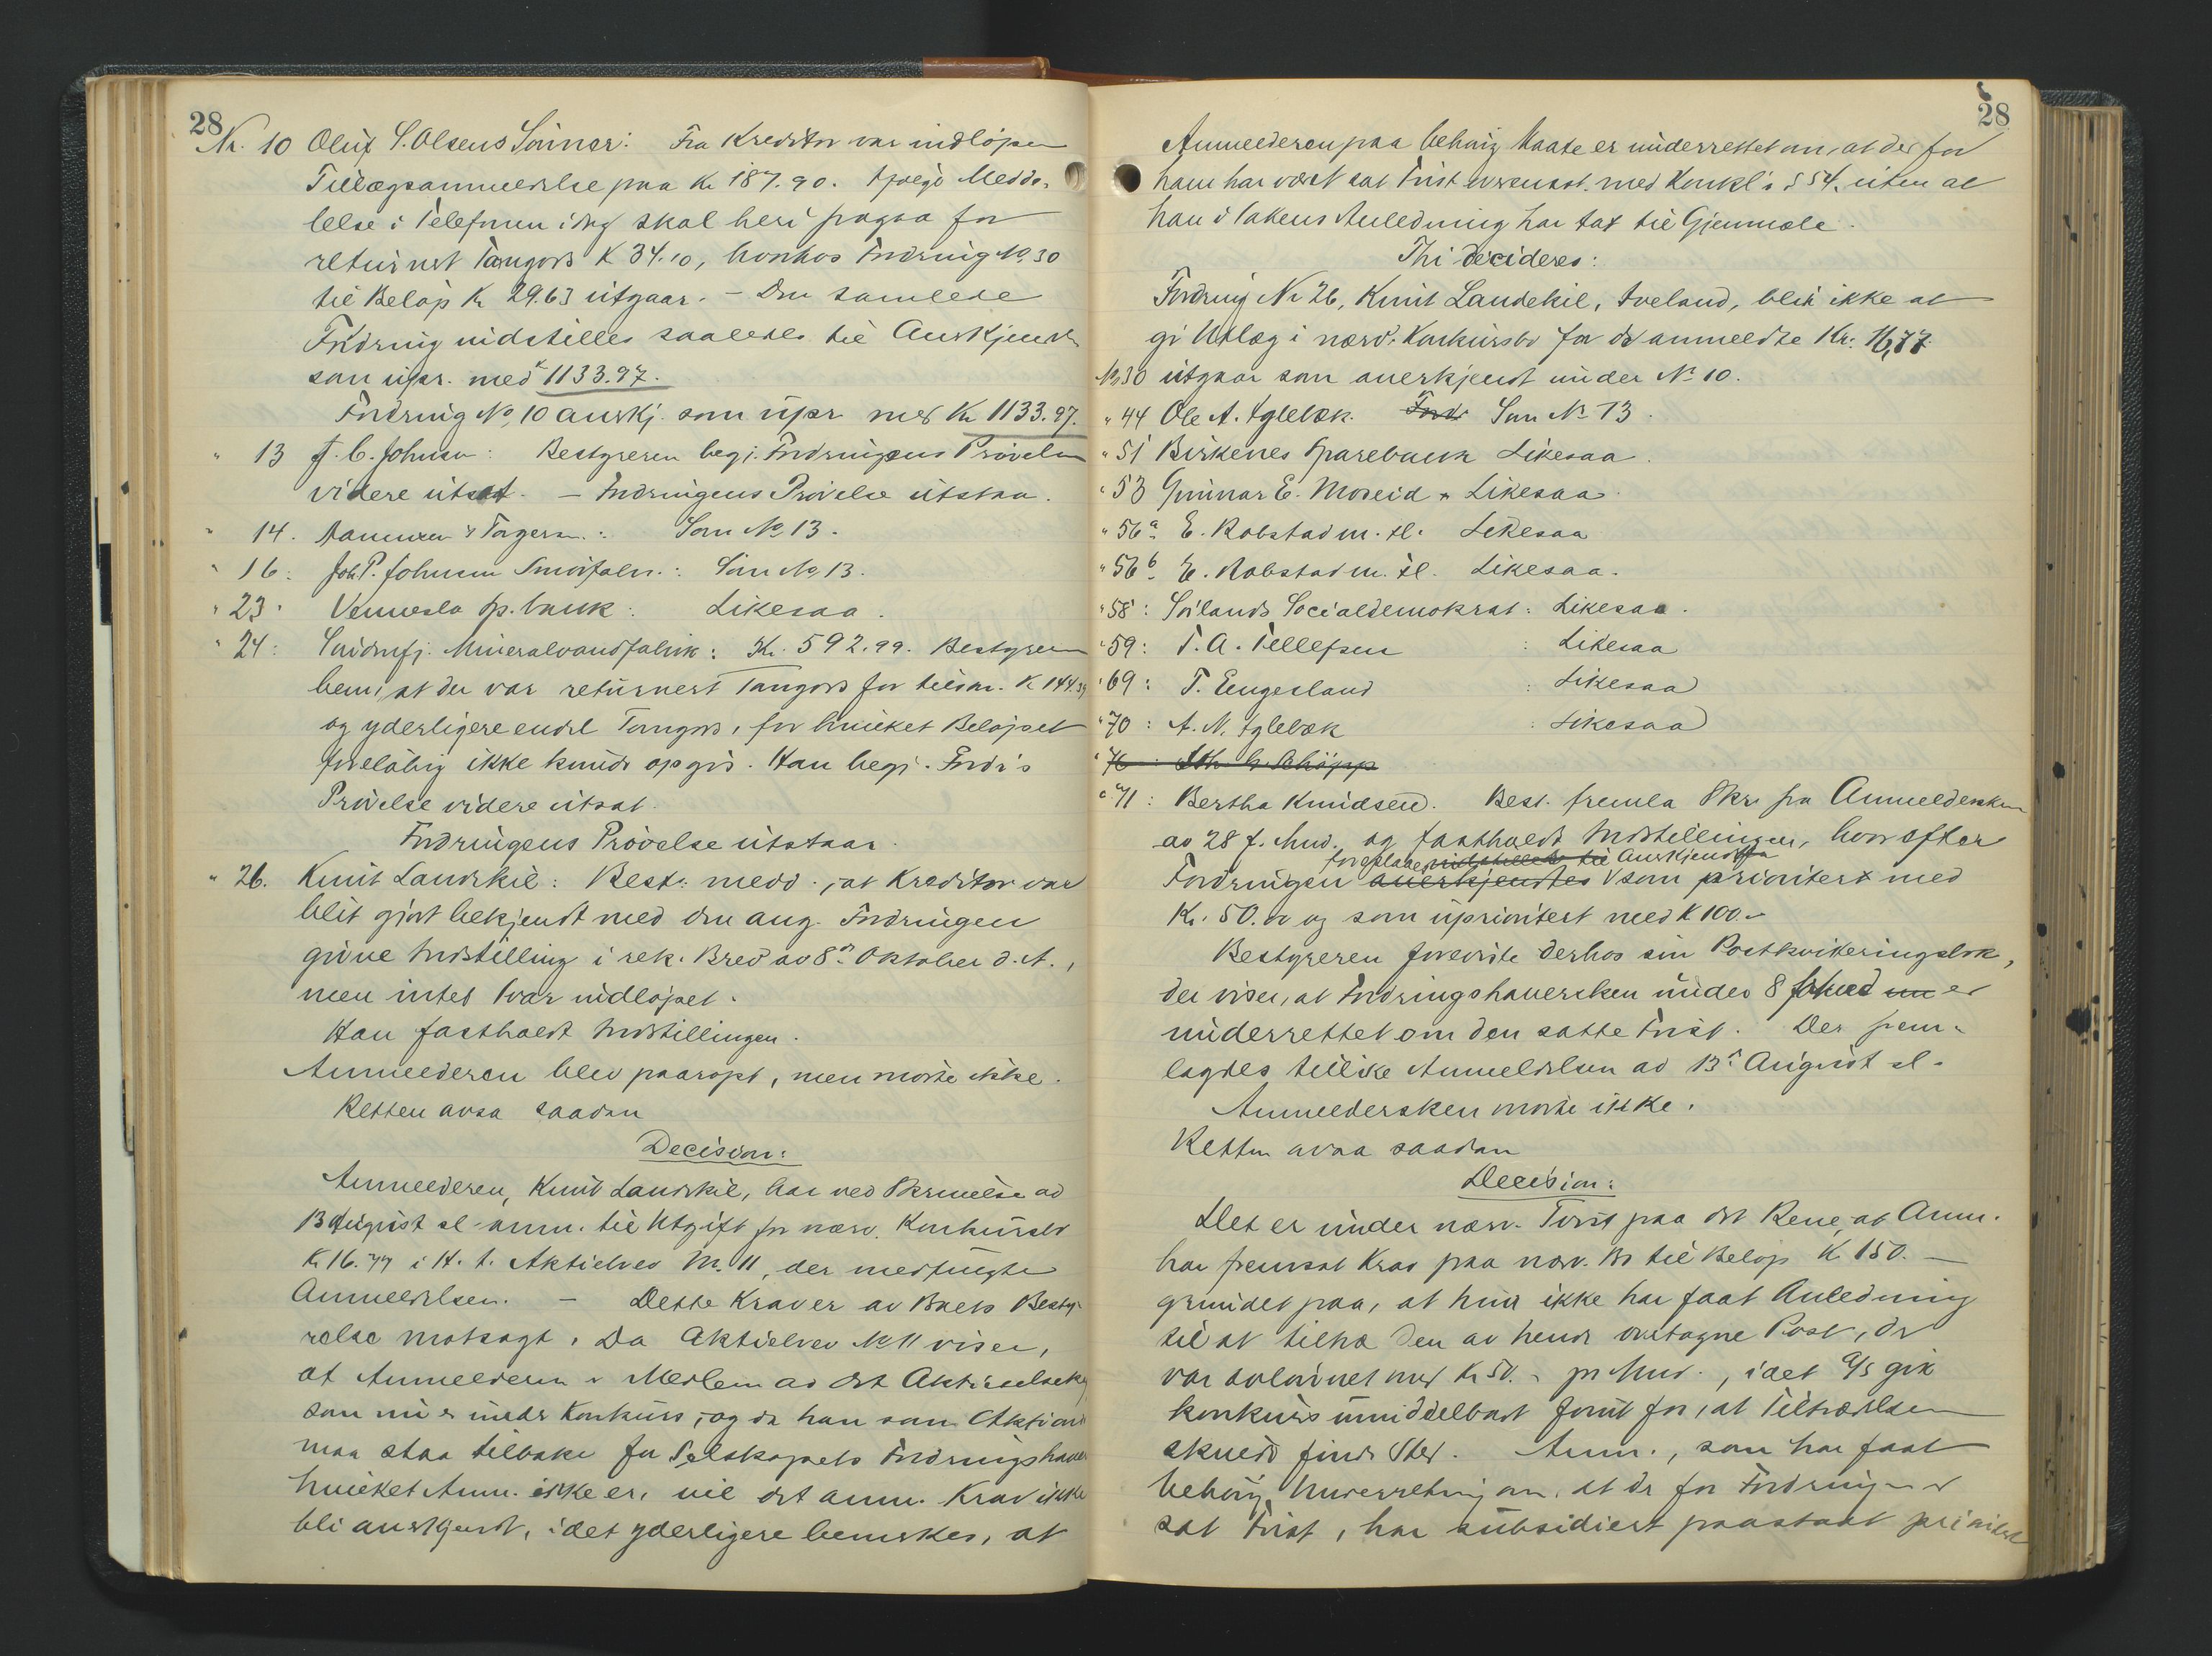 28
Nr. 10 Oluf S. Olsens Sönner: Fra Kreditor var indlöpen
Tillægsanmeldelse paa Kr 187.90. Ifölge Medde-
lelse i Telefonen idag skal heri fragaa for
returnert Tomgods K 34.10, hvorhos Fordring No 30
til Belöp Kr 29.63 utgaar. – Den samlede
Fordring indstilles saaledes til Anerkjendelse
som upr. med K 1133.97.
Fordring No 10 anerkj. som upr med Kr 1133.97.
" 13 J. C. Johnsen: Bestyreren begj. Fordringens Prövelse
videre utsat. – Fordringens Prövelse utstaar.
" 14. & Torgersen: Som No 13.
" 16: Joh. P. Johnsen Smörfabr.: Som No 13.
" 23: Vennesla Sp.bank: Likesaa.
" 24: Mineralvandfabrik: Kr. 592.99. Bestyreren
bem. at der var returnert Tomgods for tils. K 144.39
og yderligere endel Tomgods, for hvilket Belöpet
forelöbig ikke kunde opgis. Han begj. Fordr's
Prövelse videre utsat.
Fordringens Prövelse utstaar.
" 26. Knut Landekil: Best. medd. at Kreditor var
blit gjort bekjendt med den ang. Fordringen
givne Indstilling i rek. Brev av 8de Oktober d.A.,
men intet Svar indlöpet.
Han fastholdt Indstillingen.
Anmelderen blev paaropt, men mötte ikke.
Retten avsa saadan
Decision:
Anmelderen, Knut Landekil, har ved Skrivelse av
13 August sl. anm. til Utgift for nærv. Konkursbo
K 16.77 i H. t. Aktiebrev No. 11, der medfulgte
Anmeldelsen. – Dette Krav er av Boets Besty-
relse motsagt. Da Aktiebrev No 11 viser,
at Anmelderen er Medlem av det Aktieselskap
som nu er under Konkurs, og da han som Aktionær
maa staa tilbake for Selskapets Fordringshavere
hvilket Anm. ikke er, vil det anm. Krav ikke
bli anerkjendt, idet yderligere bemerkes, at
28
Anmelderen paa behörig Maate er underrettet om, at der for
ham har været sat Frist overensst. med Konkl's § 54, uten at
han i Sakens Anledning har tat til Gjenmæle.
Thi decideres:
Fordring Nr 26, Knut Landekil, Tveland, blir ikke at
gi Utlæg i nærv. Konkursbo for de anmeldte Kr. 16,77.
No 30 utgaar som anerkjendt under No 10.
" 44 Ole A. Iglebæk. Fordr Som No 13.
" 51 Birkenes Sparebank Likesaa.
" 53 Gunnar E. Moseid Likesaa.
" 56a E. Robstad m. fl. Likesaa
" 56b E. Robstad m. fl. Likesaa.
" 58: Sörlands Socialdemokrat: Likesaa.
" 59: T. A. Tellefsen : Likesaa
" 69: T. Engesland : Likesaa
" 70: A. N. Iglebæk : Likesaa
" 71: Bertha Knudsen. Best. fremla Skr. fra Anmeldersken
av 28 f. Mnd. og fastholdt Indstillingen, hvorefter
foreslaaes indstilles til Anerkjendelse
Fordringen anerkjendtes som prioritert med
Kr. 50.00 og som uprioritert med K 100.-
Bestyreren foreviste derhos sin Postkvitteringsbok,
der viser, at Fordringshaversken under 8 f Mnd er
underrettet om den satte Frist. Der frem-
lagdes tillike Anmeldelsen av 13de August sl.
Anmeldersken mötte ikke.
Retten avsa saadan
Decision:
Det er under nærv. Tvist paa det Rene, at Anm.
har fremsat Krav paa nærv. Bo til Belöp K 150.–
grundet paa, at hun ikke har faat Anledning
til at tiltræ den av hende overtagne Post, der
var avlönnet med Kr 50.- pr Mnd., idet A/S gik
konkurs umiddelbart forut for, at Tiltrædelsen
skulde finde Sted. Anm., som har faat
behörig Underretning om, at der for Fordringen er
sat Frist, har subsidiert paastaat prioritert